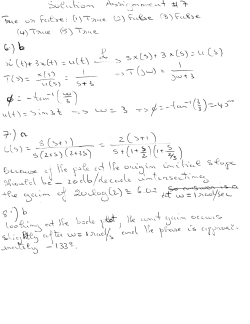 Solution Assignment #7
True or False: (1) True (2) False (3) False
(4) True (5) True
6.) b
ẋ(t) + 3x(t) = u(t) → sX(s) + 3X(s) = U(s)
T(s) = X(s)/U(s) = 1/(s+3) → T(jω) = 1/(jω+3)
ϕ = -tan⁻¹(ω/3)
u(t) = sin 3t → ω = 3 → ϕ = -tan⁻¹(3/3) = -45°
7.) a
L(s) = = 2(s+1)
because of the pole at the origin initial slope
should be -20db/decade intersecting
the gain of 20log(2) ≈ 6.0 at ω = 1 rad/sec
8.) b
looking at the bode plot, the unit gain occurs
slightly after ω = 1 rad/s and the phase is approxi-
mately -133°.